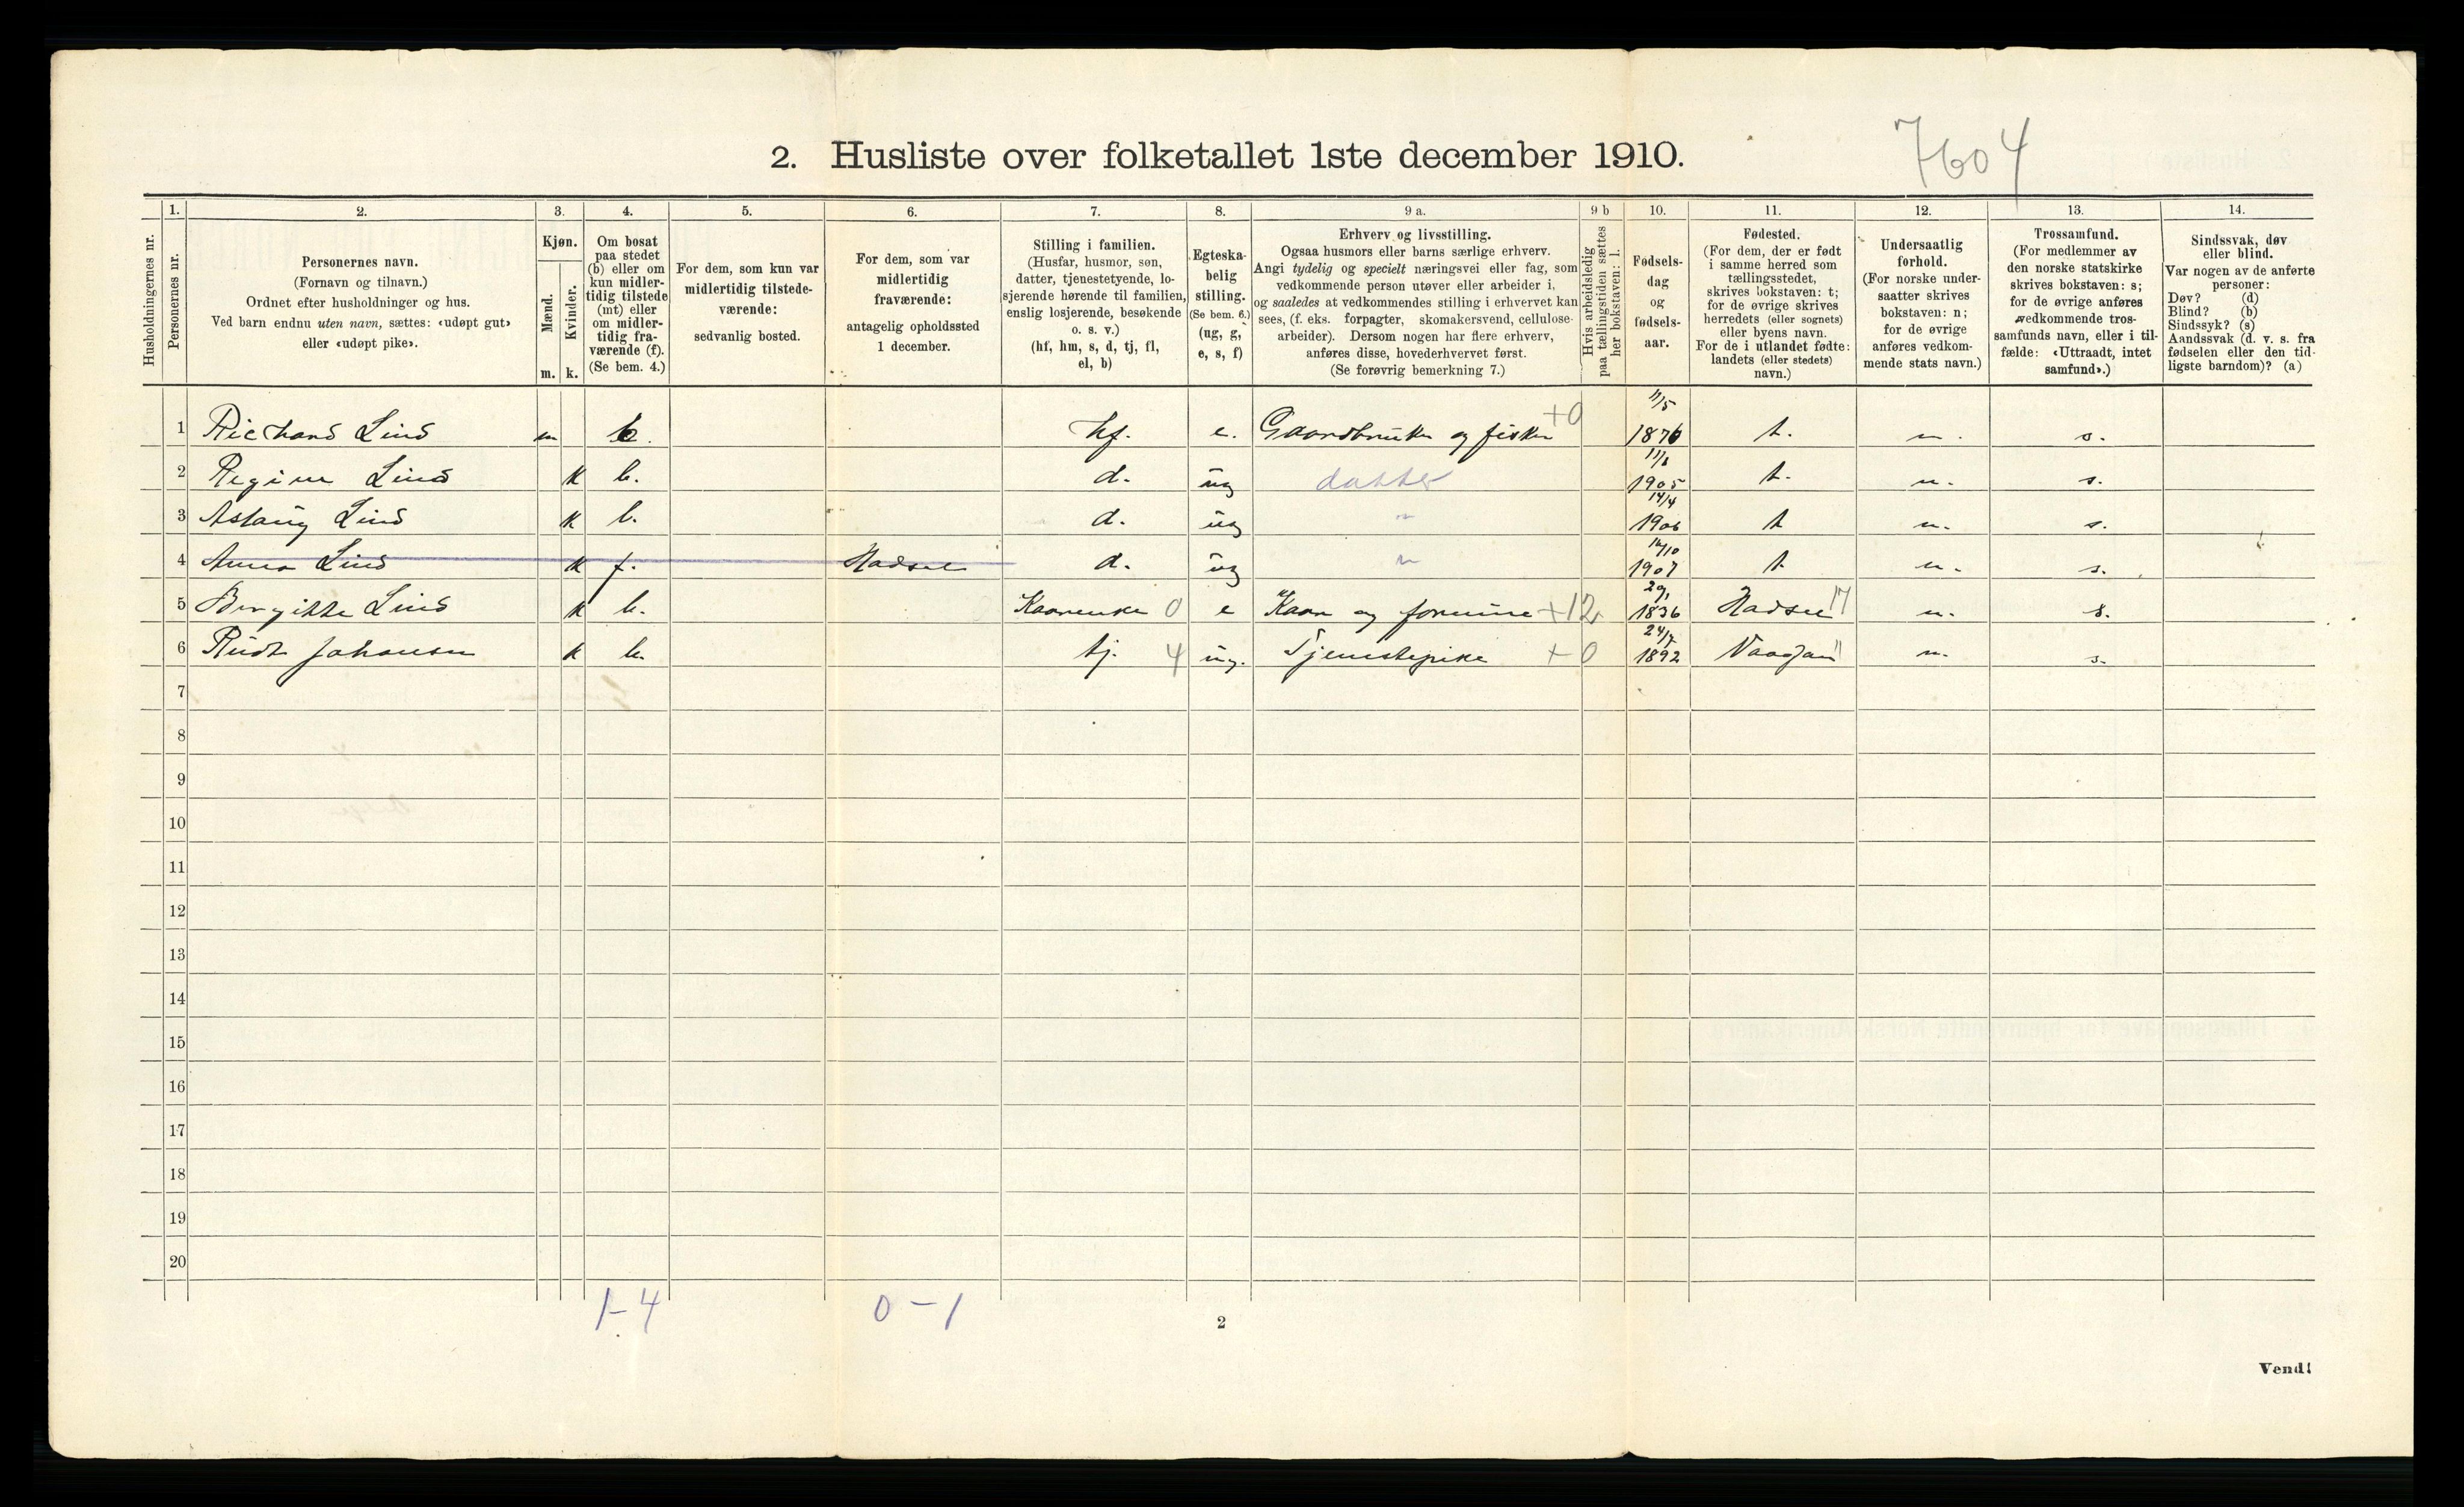 7604
2. Husliste over folketallet 1ste december 1910.
Husholdningernes nr.
1.
Personernes nr.
2.
Personernes navn.
(Fornavn og tilnavn.)
Ordnet efter husholdninger og hus.
Ved barn endnu uten navn, sættes: «udøpt gut»
eller «udøpt pike».
3.
Kjøn.
Mænd.
Kvinder.
m. k.
4.
Om bosat
paa stedet
(b) eller om
kun midler-
tidig tilstede
(mt) eller
om midler-
tidig fra-
værende (f).
(Se bem. 4.)
5.
For dem, som kun var
midlertidig tilstede-
værende:
sedvanlig bosted.
6.
For dem, som var
midlertidig
fraværende:
antagelig opholdssted
1 december.
7.
Stilling i familien.
(Husfar, husmor, søn,
datter, tjenestetyende, lo-
sjerende hørende til familien,
enslig losjerende, besøkende
o. s. v.)
(hf, hm, s, d, tj, fl,
el, b)
8.
Egteska-
belig
stilling.
(Se bem. 6.)
(ug, g,
e, s, f)
9 a.
Erhverv og livsstilling.
Ogsaa husmors eller barns særlige erhverv.
Angi tydelig og specielt næringsvei eller fag, som
vedkommende person utøver eller arbeider i,
og saaledes at vedkommendes stilling i erhvervet kan
sees, (f. eks. forpagter, skomakersvend, cellulose-
arbeider). Dersom nogen har flere erhverv,
anføres disse, hovederhvervet først.
(Se forøvrig bemerkning 7.)
9 b
Hvis arbeidsledig
paa tællingstiden sættes
her bokstaven: l.
10.
Fødsels-
dag
og
fødsels-
aar.
11.
Fødested.
(For dem, der er født
i samme herred som
tællingsstedet,
skrives bokstaven: t;
for de øvrige skrives
herredets (eller sognets)
eller byens navn.
For de i utlandet fødte:
landets (eller stedets)
navn.)
12.
Undersaatlig
forhold.
(For norske under-
saatter skrives
bokstaven: n;
for de øvrige
anføres vedkom-
mende stats navn.)
13.
Trossamfund.
(For medlemmer av
den norske statskirke
skrives bokstaven: s;
for de øvrige anføres
vedkommende tros-
samfunds navn, eller i til-
fælde: «Uttraadt, intet
samfund».)
14.
Sindssvak, døv
eller blind.
Var nogen av de anførte
personer:
Døv? (d)
Blind? (b)
Sindssyk? (s)
Aandssvak (d. v. s. fra
fødselen eller den tid-
ligste barndom)? (a)
1 Richard Lind m b. hf. e. Gaardbruker og fisker +0 11/5 1876 t. n. s.
2 Regine Lind k b. d. ug datter 1905 t. n. s.
3 Aslaug Lind k b. d. ug " 14/4 1906 t n. s.
4 Anna Lind k f. Hadsel d. ug " 1907 t n. s.
5 Birgitte Lind k b. Kaarenke 0 e Kaar og formue +12 1836 Hadsel n. s.
6 Rudt Johansen k b. tj. 4 ug. Tjenestepike +0 1892 Vaagan n. s.
7
8
9
10
11
12
13
14
15
16
17
18
19
20
1-4 0-1
2
Vend!